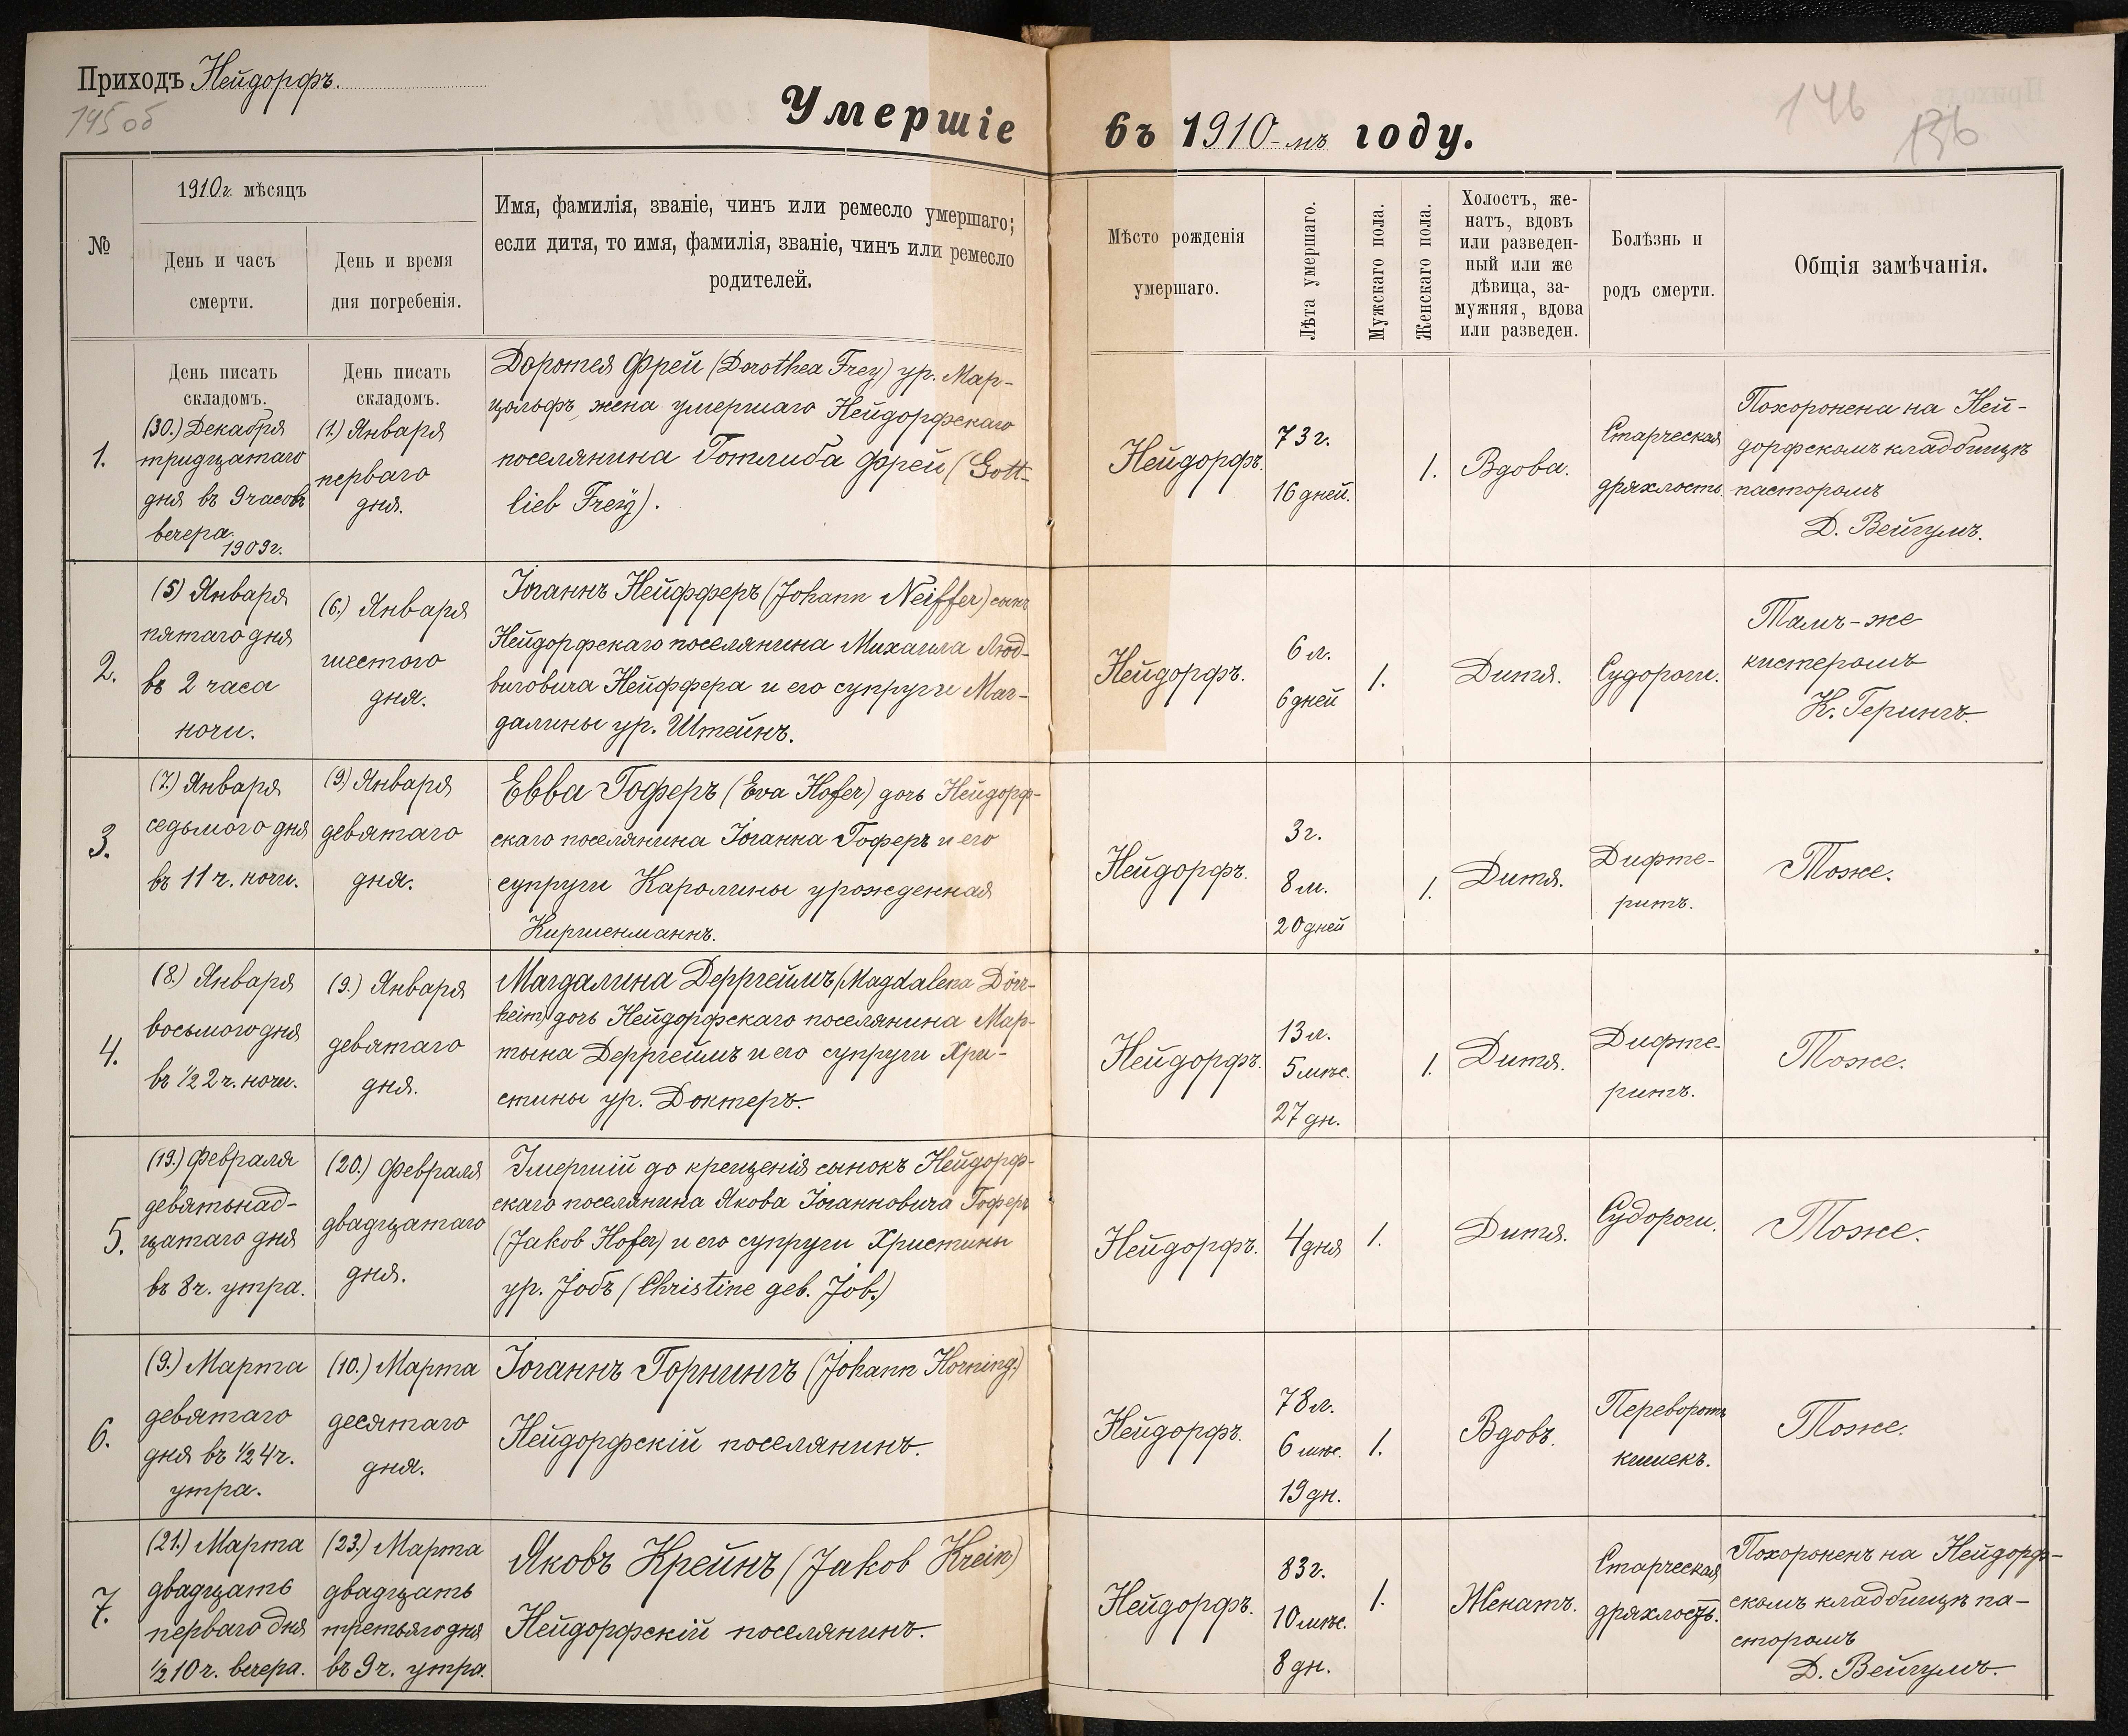 Приходъ Нейдорфъ.
145 об
Умершіе
въ 1910-мъ году.
146
136
№
1910 г. мѣсяцъ
День и часъ
смерти.
День и время
дня погребенія.
Имя, фамилія, званіе, чинъ или ремесло умершаго;
если дитя, то имя, фамилія, званіе, чинъ или ремесло
родителей.
Мѣсто рожденія
умершаго.
Лѣта умершаго.
Мужскаго пола.
Женскаго пола.
Холостъ, же-
натъ, вдовъ
или разведен-
ный или же
дѣвица, за-
мужняя, вдова
или разведен.
Болѣзнь и
родъ смерти.
Общія замѣчанія.
День писать
складомъ.
День писать
складомъ.
1.
(30.) Декабря
тридцатаго
дня въ 9 часовъ
вечера.
1909 г.
(1.) Января
перваго
дня.
Доротея Фрей (Dorothea Frey) ур. Мар-
цольфъ, жена умершаго Нейдорфскаго
поселянина Готлиба Фрей (Gott-
lieb Frey).
Нейдорфъ.
73 г.
16 дней.
1.
Вдова.
Старческая
дряхлость.
Похоронена на Ней-
дорфскомъ кладбищѣ
пасторомъ
Д. Вейгумъ.
2.
(5) Января
пятаго дня
въ 2 часа
ночи.
(6.) Января
шестого
дня.
Іоганнъ Нейфферъ (Johann Neiffer) сынъ
Нейдорфскаго поселянина Михаила Люд-
виговича Нейффера и его супруги Маг-
далины ур. Штейнъ.
Нейдорфъ.
6 л.
6 дней
1.
Дитя.
Судороги.
Тамъ-же
кистеромъ
К. Герингъ.
3.
(7.) Января
седьмого дня
въ 11 ч. ночи.
(9.) Января
девятаго
дня.
Евва Гоферъ (Eva Hofer) дочь Нейдорф-
скаго поселянина Іоганна Гоферъ и его
супруги Каролины урожденная
Киршенманнъ.
Нейдорфъ.
3 г.
8 м.
20 дней
1.
Дитя.
Дифте-
ритъ.
Тоже.
4.
(8.) Января
восьмого дня
въ ½ 2 ч. ночи.
(9.) Января
девятаго
дня.
Магдалина Дерргеймъ (Magdalena Dörr-
heim) дочь Нейдорфскаго поселянина Мар-
тына Дерргеймъ и его супруги Хри-
стины ур. Доктеръ.
Нейдорфъ.
13 л.
5 мѣс.
27 дн.
1.
Дитя.
Дифте-
ритъ.
Тоже.
5.
(19.) Февраля
девятьнад-
цатаго дня
въ 8 ч. утра.
(20.) Февраля
двадцатаго
дня.
Умершій до крещенія сынокъ Нейдорф-
скаго поселянина Якова Іоганновича Гоферъ
(Jakob Hofer) и его супруги Христины
ур. Јобъ (Christine geb. Job.)
Нейдорфъ.
4 дня
1.
Дитя.
Судороги.
Тоже.
6.
(9.) Марта
девятаго
дня въ ½ 4 ч.
утра.
(10.) Марта
десятаго
дня.
Іоганнъ Горнингъ (Johann Horning.)
Нейдорфскій поселянинъ.
Нейдорфъ.
78 л.
6 мѣс.
19 дн.
1.
Вдовъ.
Переворотъ
кишекъ.
Тоже.
7.
(21.) Марта
двадцать
перваго дня
½ 10 ч. вечера.
(23.) Марта
двадцать
третьяго дня
въ 9 ч. утра.
Яковъ Крейнъ (Jakob Krein)
Нейдорфскій поселянинъ.
Нейдорфъ.
83 г.
10 мѣс.
8 дн.
1.
Женатъ.
Старческая
дряхлость.
Похороненъ на Нейдорф-
скомъ кладбищѣ па-
сторомъ
Д. Вейгумъ.